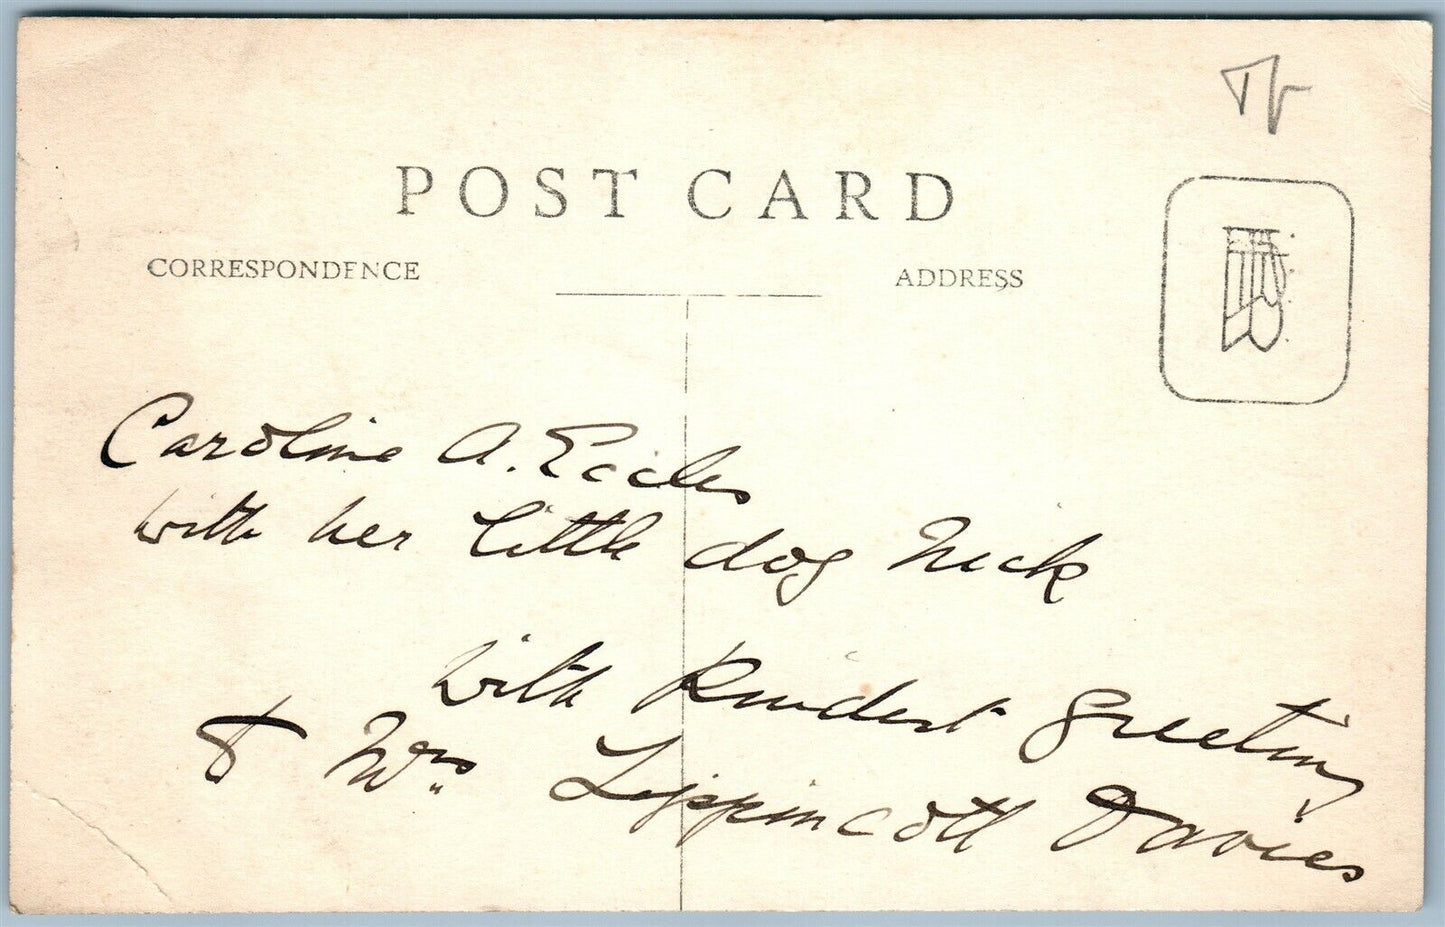 POST CARD
CORRESPONDENCE
ADDRESS
Caroline A. Eccles
with her little dog Nick
with Kindest greeting
to Mrs Lippincott Davies